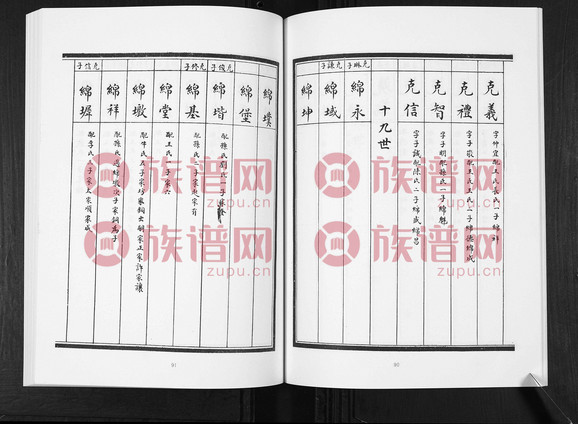 克義
字仲宜配王氏張氏一子綿祥
克禮
字子敬配王氏王氏二子綿德綿成
克智
字子明配孫氏一子綿魁
克信
字子誠配陳氏二子綿成綿昌
十九世
克林子
綿永
克謙子
綿域
綿坤
80
綿墣
綿堡
克俊子
綿堦
配孫氏劉氏一子
克修子
綿基
配孫氏二子家秋家有
綿堂
配王氏一子家六
綿墩
配牛氏五子家珍家銅家正家許家讓
綿祥
配孫氏過綿墩次子家銅為子
克信子
綿墀
配李氏三子家太家順家成
91
族谱网
zupu.cn
族谱网
zupu.cn
族谱网
zupu.cn
族谱网
zupu.cn